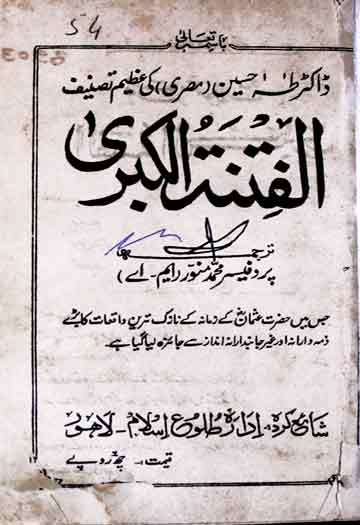 54
باسمہ تعالیٰ
ڈاکٹر طٰہٰ حسین (مصری) کی عظیم تصنیف
الفتنۃ الکبریٰ
ترجمہ
پروفیسر محمد منور (ایم۔ اے)
جس میں حضرت عثمانؓ کے زمانہ کے نازک ترین واقعات کا بڑے
ذمہ دارانہ اور غیر جانبدارانہ انداز سے جائزہ لیا گیا ہے۔
شائع کردہ: ادارہ طلوع اسلام - لاہور
قیمت:- چھ روپے